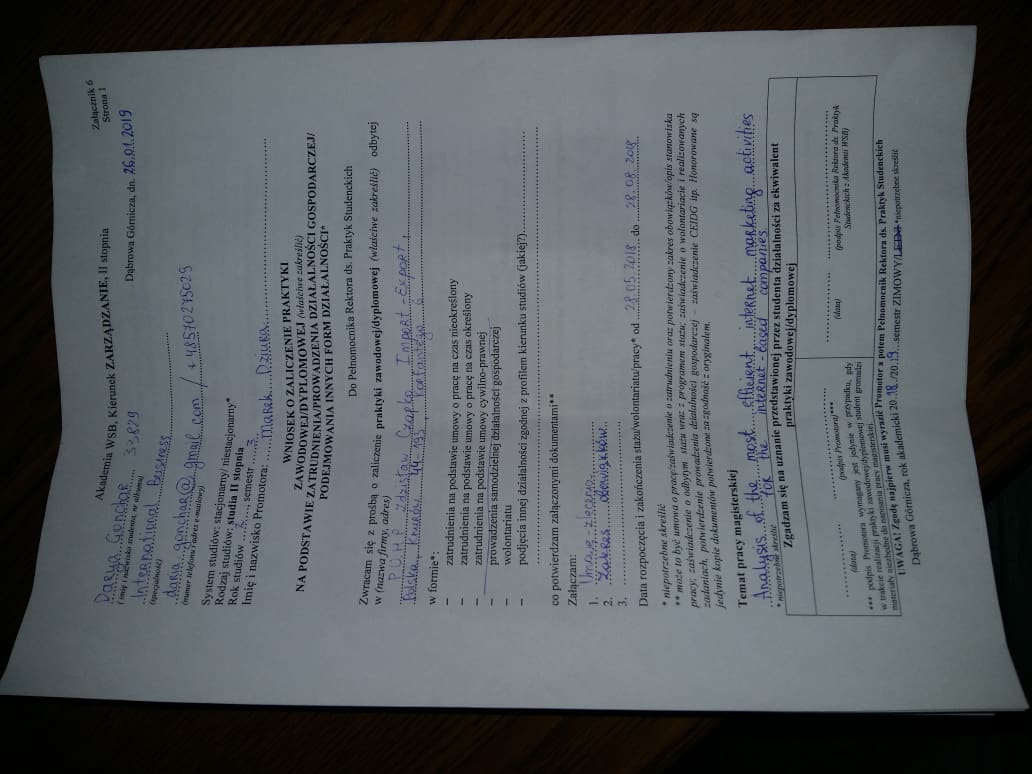 Załącznik 6
Strona 1
Akademia WSB, Kierunek ZARZĄDZANIE, II stopnia
Darya Gonchar 33829
(imię i nazwisko studenta, nr albumu)
Dąbrowa Górnicza, dn. 26.01.2019
International Business
(specjalność)
daria.gonchar@gmail.com / +48570275029
(numer telefonu i adres e-mailowy)
System studiów: stacjonarny/ niestacjonarny*
Rodzaj studiów: studia II stopnia
Rok studiów ...2..., semestr ...3...
Imię i nazwisko Promotora: ....Marek Dziura
WNIOSEK O ZALICZENIE PRAKTYKI
ZAWODOWEJ/DYPLOMOWEJ (właściwe zakreślić)
NA PODSTAWIE ZATRUDNIENIA/PROWADZENIA DZIAŁALNOŚCI GOSPODARCZEJ/
PODEJMOWANIA INNYCH FORM DZIAŁALNOŚCI*
Do Pełnomocnika Rektora ds. Praktyk Studenckich
Zwracam się z prośbą o zaliczenie praktyki zawodowej/dyplomowej (właściwe zakreślić) odbytej
w (nazwa firmy, adres)
P.U.H.P Zdzisław Czapko Import-Export,
Polska, Knurów 44-193, Korfantego 6
w formie*:
– zatrudnienia na podstawie umowy o pracę na czas nieokreślony
– zatrudnienia na podstawie umowy o pracę na czas określony
– zatrudnienia na podstawie umowy cywilno-prawnej
– prowadzenia samodzielnej działalności gospodarczej
– wolontariatu
– podjęcia innej działalności zgodnej z profilem kierunku studiów (jakiej?)
co potwierdzam załączonymi dokumentami**
Załączam:
1. Umowę-zlecenia
2. Zakres obowiązków
3.
Data rozpoczęcia i zakończenia stażu/wolontariatu/pracy* od 28.05.2018 do 28.08.2018
* niepotrzebne skreślić
** może to być umowa o pracę/zaświadczenie o zatrudnieniu oraz potwierdzony zakres obowiązków/opis stanowiska
pracy; zaświadczenie o odbytym stażu wraz z programem stażu; zaświadczenie o wolontariacie i realizowanych
zadaniach, potwierdzenie prowadzenia działalności gospodarczej – zaświadczenie CEIDG itp. Honorowane są
jedynie kopie dokumentów potwierdzone za zgodność z oryginałem.
Temat pracy magisterskiej
Analysis of the most efficient internet marketing activities
for the internet-based companies
* niepotrzebne skreślić
Zgadzam się na uznanie przedstawionej przez studenta działalności za ekwiwalent
praktyki zawodowej/dyplomowej
(data) (podpis Promotora)***
(data) (podpis Pełnomocnika Rektora ds. Praktyk
Studenckich z Akademii WSB)
*** podpis Promotora wymagany jest jedynie w przypadku, gdy
w trakcie realizacji praktyki zawodowej/dyplomowej student gromadzi
materiały niezbędne do napisania pracy magisterskiej
UWAGA! Zgodę najpierw musi wyrazić Promotor a potem Pełnomocnik Rektora ds. Praktyk Studenckich
Dąbrowa Górnicza, rok akademicki 2018/2019...semestr ZIMOWY/LETNI *niepotrzebne skreślić